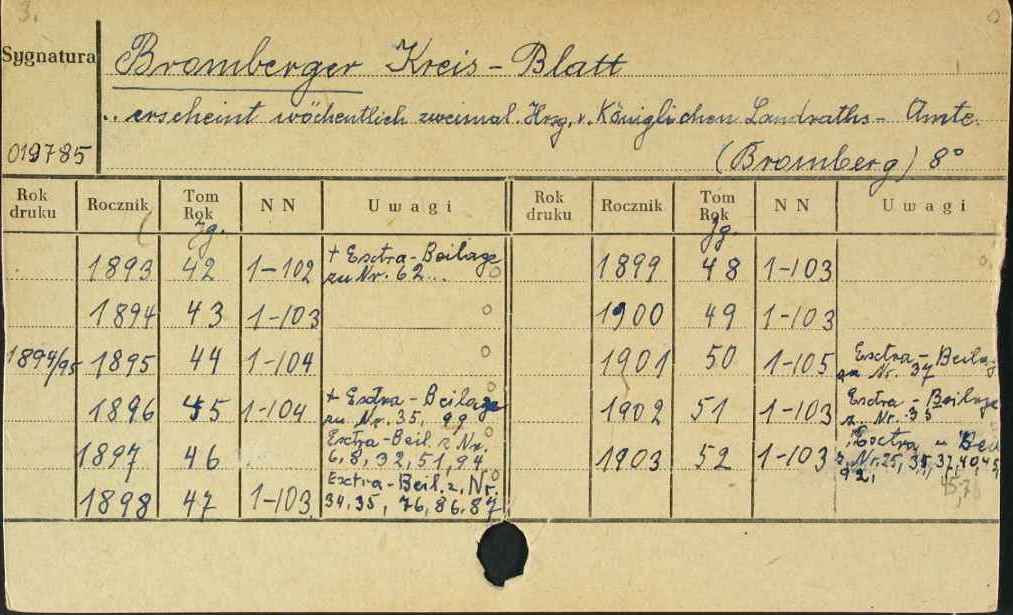 3.
Sygnatura
Bromberger Kreis-Blatt
.. erscheint wöchentlich zweimal. Hrsg. v. Königlichen Landraths- Amte.
019785
(Bromberg) 8°
Rok druku Rocznik Tom Rok NN Uwagi Rok druku Rocznik Tom Rok NN Uwagi
Jg. Jg
1893 42 1-102 + Extra-Beilage zu Nr. 62... 1899 48 1-103
1894 43 1-103 1900 49 1-103
1894/95 1895 44 1-104 1901 50 1-105 Extra-Beilag zu Nr. 37
1896 45 1-104 + Extra-Beilage zu Nr. 35, 99 1902 51 1-103 Extra-Beilage z. Nr. 35
1897 46 Extra-Beil. z Nr. 6, 8, 32, 51, 94. 1903 52 1-103 Extra u Bei z. Nr. 25, 35, 37, 40, 45, 92,
45,7
1898 47 1-103 Extra-Beil. z. Nr. 34, 35, 76, 86, 87